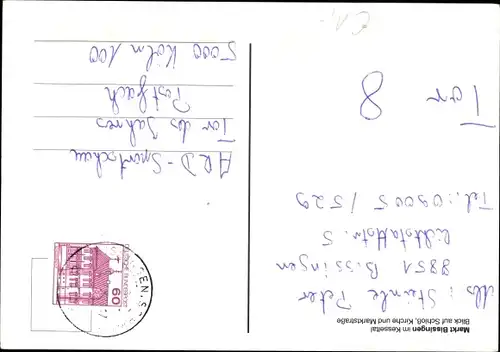 Markt Bissingen im Kesseltal
Blick auf Schloß, Kirche und Marktstraße
Abs: Steinle Peter
8851 Bissingen
Tel.: 09005 / 529
Tor
8
60
ARD - Sportschau
Tor des Jahres
Postfach
5000 Köln 100